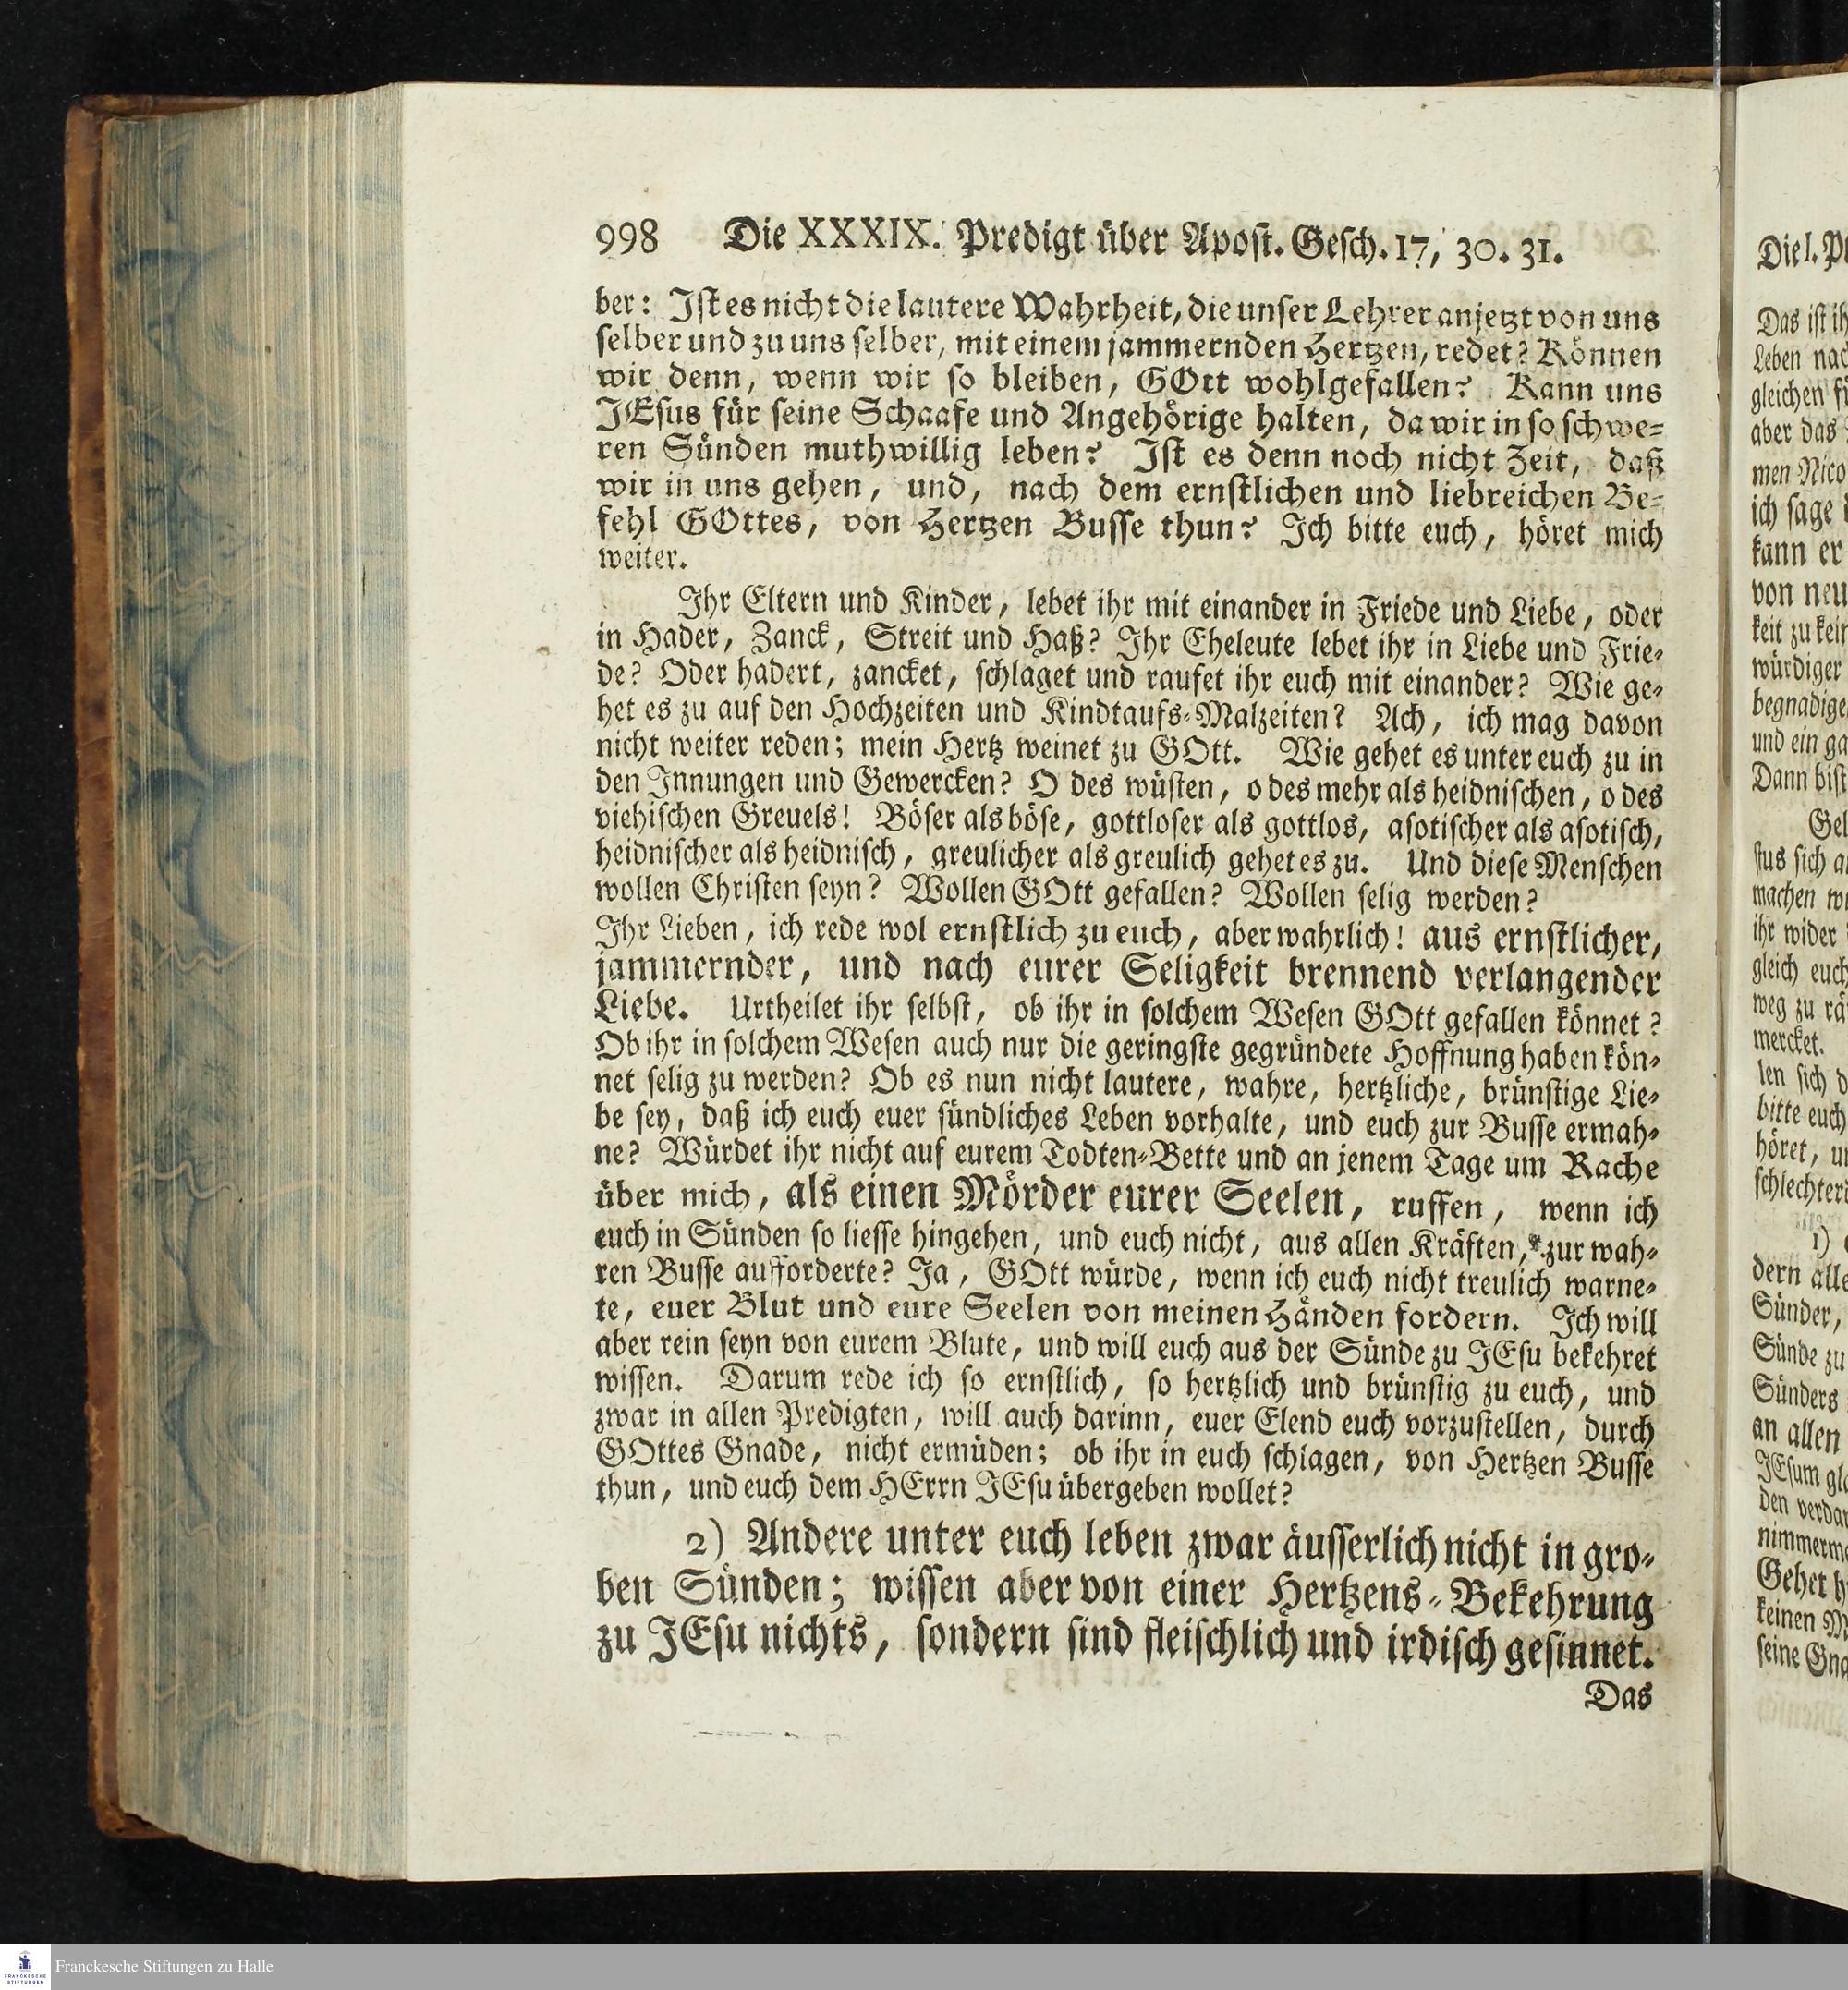 998 Die XXXIX. Predigt über Apost. Gesch. 17, 30. 31.
ber: Ist es nicht die lautere Wahrheit, die unser Lehrer anjetzt von uns
selber und zu uns selber, mit einem jammernden Hertzen, redet? Können
wir denn, wenn wir so bleiben, GOtt wohlgefallen? Kann uns
JEsus für seine Schaafe und Angehörige halten, da wir in so schwe-
ren Sünden muthwillig leben? Ist es denn noch nicht Zeit, daß
wir in uns gehen, und, nach dem ernstlichen und liebreichen Be-
fehl GOttes, von Hertzen Busse thun? Ich bitte euch, höret mich
weiter.
Ihr Eltern und Kinder, lebet ihr mit einander in Friede und Liebe, oder
in Hader, Zanck, Streit und Haß? Ihr Eheleute lebet ihr in Liebe und Frie-
de? Oder hadert, zancket, schlaget und raufet ihr euch mit einander? Wie ge-
het es zu auf den Hochzeiten und Kindtaufs-Malzeiten? Ach, ich mag davon
nicht weiter reden; mein Hertz weinet zu GOtt. Wie gehet es unter euch zu in
den Innungen und Gewercken? O des wüsten, o des mehr als heidnischen, o des
viehischen Greuels! Böser als böse, gottloser als gottlos, asotischer als asotisch,
heidnischer als heidnisch, greulicher als greulich gehet es zu. Und diese Menschen
wollen Christen seyn? Wollen GOtt gefallen? Wollen selig werden?
Ihr Lieben, ich rede wol ernstlich zu euch, aber wahrlich! aus ernstlicher,
jammernder, und nach eurer Seligkeit brennend verlangender
Liebe. Urtheilet ihr selbst, ob ihr in solchem Wesen GOtt gefallen könnet?
Ob ihr in solchem Wesen auch nur die geringste gegründete Hoffnung haben kön-
net selig zu werden? Ob es nun nicht lautere, wahre, hertzliche, brünstige Lie-
be sey, daß ich euch euer sündliches Leben vorhalte, und euch zur Busse ermah-
ne? Würdet ihr nicht auf eurem Todten-Bette und an jenem Tage um Rache
über mich, als einen Mörder eurer Seelen, ruffen, wenn ich
euch in Sünden so liesse hingehen, und euch nicht, aus allen Kräften, zur wah-
ren Busse aufforderte? Ja, GOtt würde, wenn ich euch nicht treulich warne-
te, euer Blut und eure Seelen von meinen Händen fordern. Ich will
aber rein seyn von eurem Blute, und will euch aus der Sünde zu JEsu bekehret
wissen. Darum rede ich so ernstlich, so hertzlich und brünstig zu euch, und
zwar in allen Predigten, will auch darinn, euer Elend euch vorzustellen, durch
GOttes Gnade, nicht ermüden; ob ihr in euch schlagen, von Hertzen Busse
thun, und euch dem HErrn JEsu übergeben wollet?
2) Andere unter euch leben zwar äusserlich nicht in gro-
ben Sünden; wissen aber von einer Hertzens-Bekehrung
zu JEsu nichts, sondern sind fleischlich und irdisch gesinnet.
Das
Die I.
Das ist
Leben
gleichen
aber das
men
ich sage
kann er
von neu
keit zu
würdiger
begnadige
und ein
Dann bist
stus sich
machen
ihr wider
gleich euch
weg zu
mercket.
len sich
bitte euch
höret,
schlechter
1)
dern alle
Sünder,
Sünde zu
Sünders
an allen
JEsum
den
Gehet
keinen
seine
Franckesche Stiftungen zu Halle
FRANCKESCHE
STIFTUNGEN